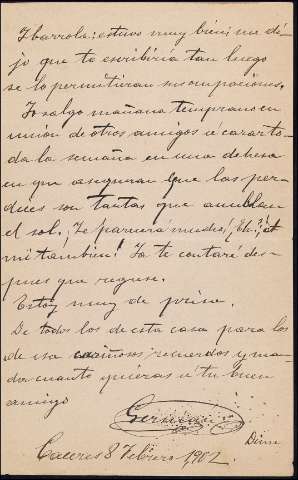 Ibarrola: estuvo muy bien; me dé-
jo que te escribiría tan luego
se lo permitieran sus ocupaciones.
Yo salgo mañana temprano en
union de otros amigos a cazar to-
da la semana en una dehesa
en que aseguran que las per-
dices son tantas que anublan
el sol. ¡Te parecerá mucho! ¡Eh?! ¡A
mi tambien! Ya te contaré des-
pues que regrese.
Estoy muy de prisa.
De todos los de esta casa para los
de esa cariñosos recuerdos y man-
da cuanto quieras a tu buen
amigo
German
Caceres 8 Febrero 1902